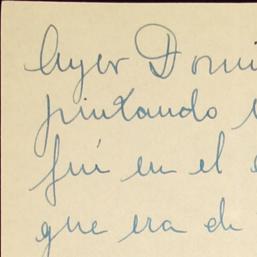 Ayer Domi
pintando
fuí en el
que era de